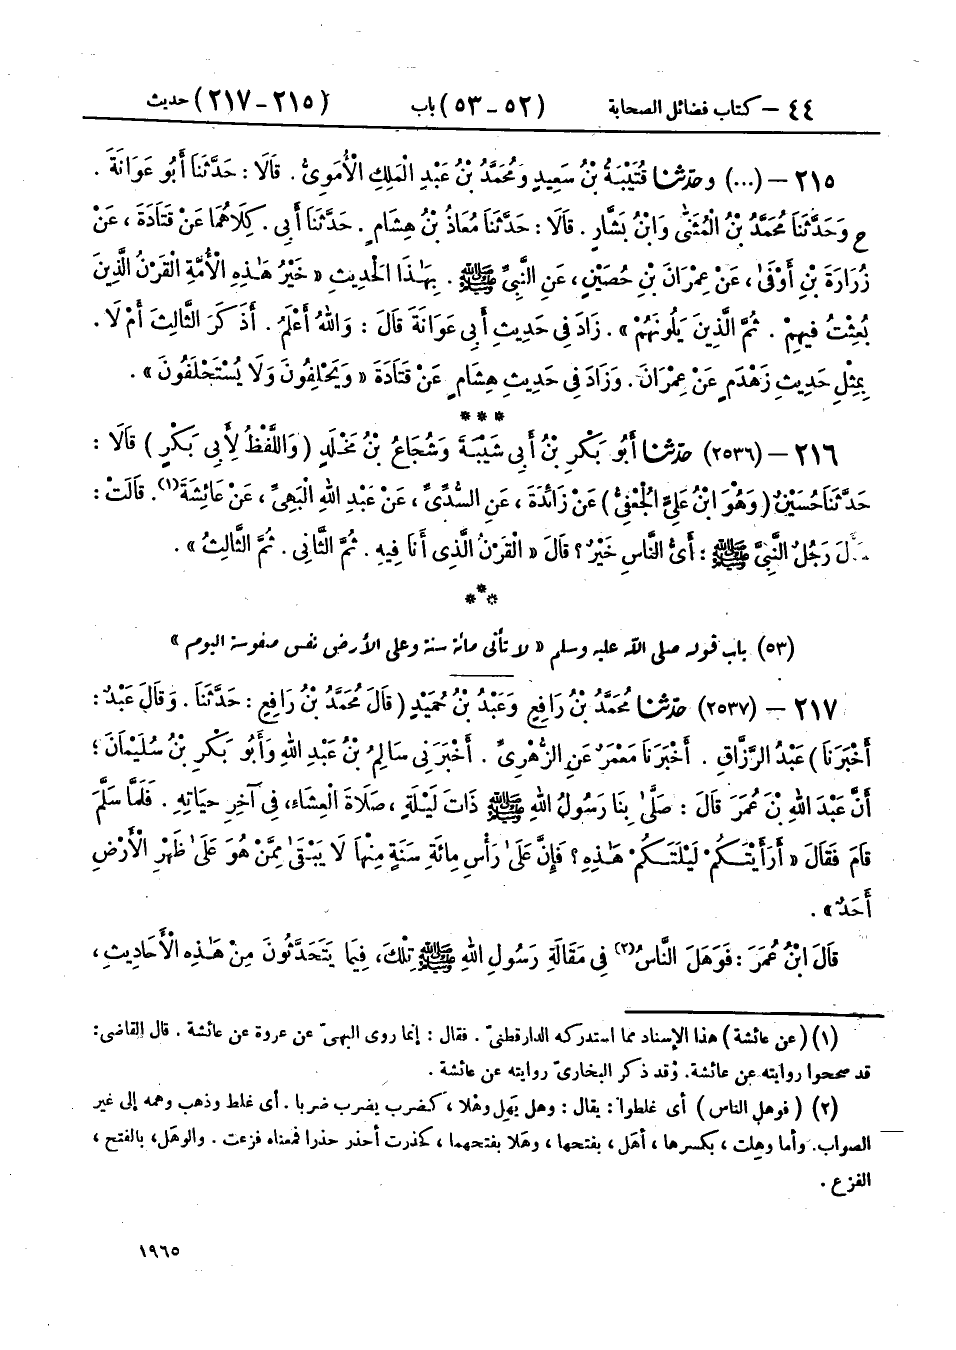 ٤٤ – كتاب فضائل الصحابة (٥٢ – ٥٣) باب (٢١٥ – ٢١٧) حديث
٢١٥ – (...) وحَدَّثَنَا قُتَيْبَةُ بْنُ سَعِيدٍ وَمُحَمَّدُ بْنُ عَبْدِ الْمَلِكِ الْأُمَوِيُّ . قَالَا : حَدَّثَنَا أَبُو عَوَانَةَ .
ح وَحَدَّثَنَا مُحَمَّدُ بْنُ الْمُثَنَّى وَابْنُ بَشَّارٍ . قَالَا : حَدَّثَنَا مُعَاذُ بْنُ هِشَامٍ . حَدَّثَنَا أَبِي . كِلَاهُمَا عَنْ قَتَادَةَ ، عَنْ
زُرَارَةَ بْنِ أَوْفَىٰ ، عَنْ عِمْرَانَ بْنِ حُصَيْنٍ ، عَنِ النَّبِيِّ ﷺ . بِهَٰذَا الْحَدِيثِ « خَيْرُ هَٰذِهِ الْأُمَّةِ الْقَرْنُ الَّذِينَ
بُعِثْتُ فِيهِمْ . ثُمَّ الَّذِينَ يَلُونَهُمْ » . زَادَ فِي حَدِيثِ أَبِي عَوَانَةَ قَالَ : وَاللهُ أَعْلَمُ . أَذَكَرَ الثَّالِثَ أَمْ لَا .
بِمِثْلِ حَدِيثِ زَهْدَمٍ عَنْ عِمْرَانَ . وَزَادَ فِي حَدِيثِ هِشَامٍ عَنْ قَتَادَةَ « وَيَحْلِفُونَ وَلَا يُسْتَحْلَفُونَ » .
***
٢١٦ – (٢٥٣٦) حَدَّثَنَا أَبُو بَكْرِ بْنُ أَبِي شَيْبَةَ وَشُجَاعُ بْنُ مَخْلَدٍ ( وَاللَّفْظُ لِأَبِي بَكْرٍ ) قَالَا :
حَدَّثَنَا حُسَيْنٌ ( وَهُوَ ابْنُ عَلِيٍّ الْجُعْفِيُّ ) عَنْ زَائِدَةَ ، عَنِ السُّدِّيِّ ، عَنْ عَبْدِ اللهِ الْبَهِيِّ ، عَنْ عَائِشَةَ(١) . قَالَتْ :
سَأَلَ رَجُلٌ النَّبِيَّ ﷺ : أَيُّ النَّاسِ خَيْرٌ ؟ قَالَ « الْقَرْنُ الَّذِي أَنَا فِيهِ . ثُمَّ الثَّانِي . ثُمَّ الثَّالِثُ » .
***
(٥٣) باب قوله صلى الله عليه وسلم « لا تأتى مائة سنة وعلى الأرض نفس منفوسة اليوم »
٢١٧ – (٢٥٣٧) حَدَّثَنَا مُحَمَّدُ بْنُ رَافِعٍ وَعَبْدُ بْنُ حُمَيْدٍ ( قَالَ مُحَمَّدُ بْنُ رَافِعٍ : حَدَّثَنَا . وَقَالَ عَبْدٌ :
أَخْبَرَنَا ) عَبْدُ الرَّزَّاقِ . أَخْبَرَنَا مَعْمَرٌ عَنِ الزُّهْرِيِّ . أَخْبَرَنِي سَالِمُ بْنُ عَبْدِ اللهِ وَأَبُو بَكْرِ بْنُ سُلَيْمَانَ ؛
أَنَّ عَبْدَ اللهِ بْنَ عُمَرَ قَالَ : صَلَّىٰ بِنَا رَسُولُ اللهِ ﷺ ذَاتَ لَيْلَةٍ ، صَلَاةَ الْعِشَاءِ، فِي آخِرِ حَيَاتِهِ . فَلَمَّا سَلَّمَ
قَامَ فَقَالَ « أَرَأَيْتَكُمْ لَيْلَتَكُمْ هَٰذِهِ ؟ فَإِنَّ عَلَىٰ رَأْسِ مِائَةِ سَنَةٍ مِنْهَا لَا يَبْقَىٰ مِمَّنْ هُوَ عَلَىٰ ظَهْرِ الْأَرْضِ
أَحَدٌ » .
قَالَ ابْنُ عُمَرَ : فَوَهَلَ النَّاسُ(٢) فِي مَقَالَةِ رَسُولِ اللهِ ﷺ تِلْكَ، فِيمَا يَتَحَدَّثُونَ مِنْ هَٰذِهِ الْأَحَادِيثِ ،
(١) ( عن عائشة ) هذا الإسناد مما استدركه الدارقطنىّ . فقال : إنما روى البهىّ عن عروة عن عائشة . قال القاضى :
قد صححوا روايته عن عائشة. وقد ذكر البخارىّ روايته عن عائشة .
(٢) ( فوهل الناس ) أى غلطوا : يقال : وهل يَهِل وهْلا ، كضرب يضرب ضربا . أى غلط وذهب وهمه إلى غير
الصواب. وأما وهِلت ، بكسرها ، أهَل ، بفتحها ، وهَلا بفتحهما ، كحذرت أحذر حذرا فمعناه فزعت . والوهَل، بالفتح ،
الفزع .
١٩٦٥